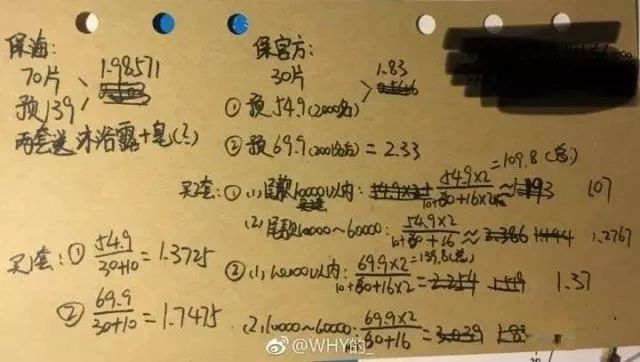 保海：
70片 1.98571
预139
两套送沐浴露+皂(?)
保官方：
30片 1.83
① 预54.9(2000名)
② 预69.9(2001名后)=2.33
买2套：①(1)尾款10000以内：54.9×2/10+30+16×2 ≈ 1.07 =109.8(总)
(2)尾款10000~60000：54.9×2/10+80+16 ≈ 1.2767
②(1)10000以内：69.9×2/10+80+16×2 = 1.37 =139.8(总)
(2)10000~60000：69.9×2/10+80+16 =
买1套：① 54.9/30+10=1.3725
② 69.9/30+10=1.7475
@WHY的_